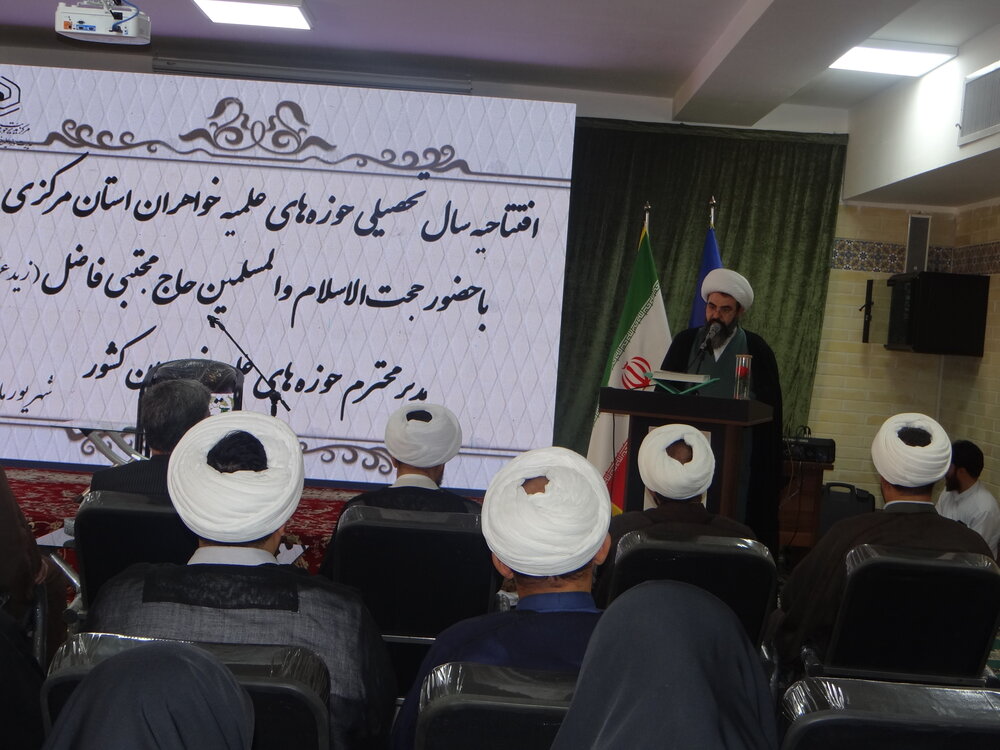 افتتاحیه سال تحصیلی حوزه های علمیه خواهران استان مرکزی
با حضور حجت الاسلام والمسلمین حاج مجتبی فاضل (زید
مدیر محترم حوزه های کشور
شهریور